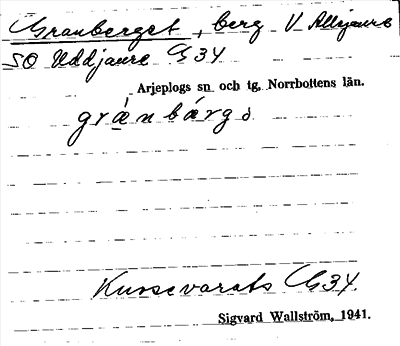 Granberget, berg V Allejaure
SO Uddjaure G34
Arjeplogs sn och tg, Norrbottens län.
grà̤nbárgə
Kurrevarats G34.
Sigvard Wallström, 1941.